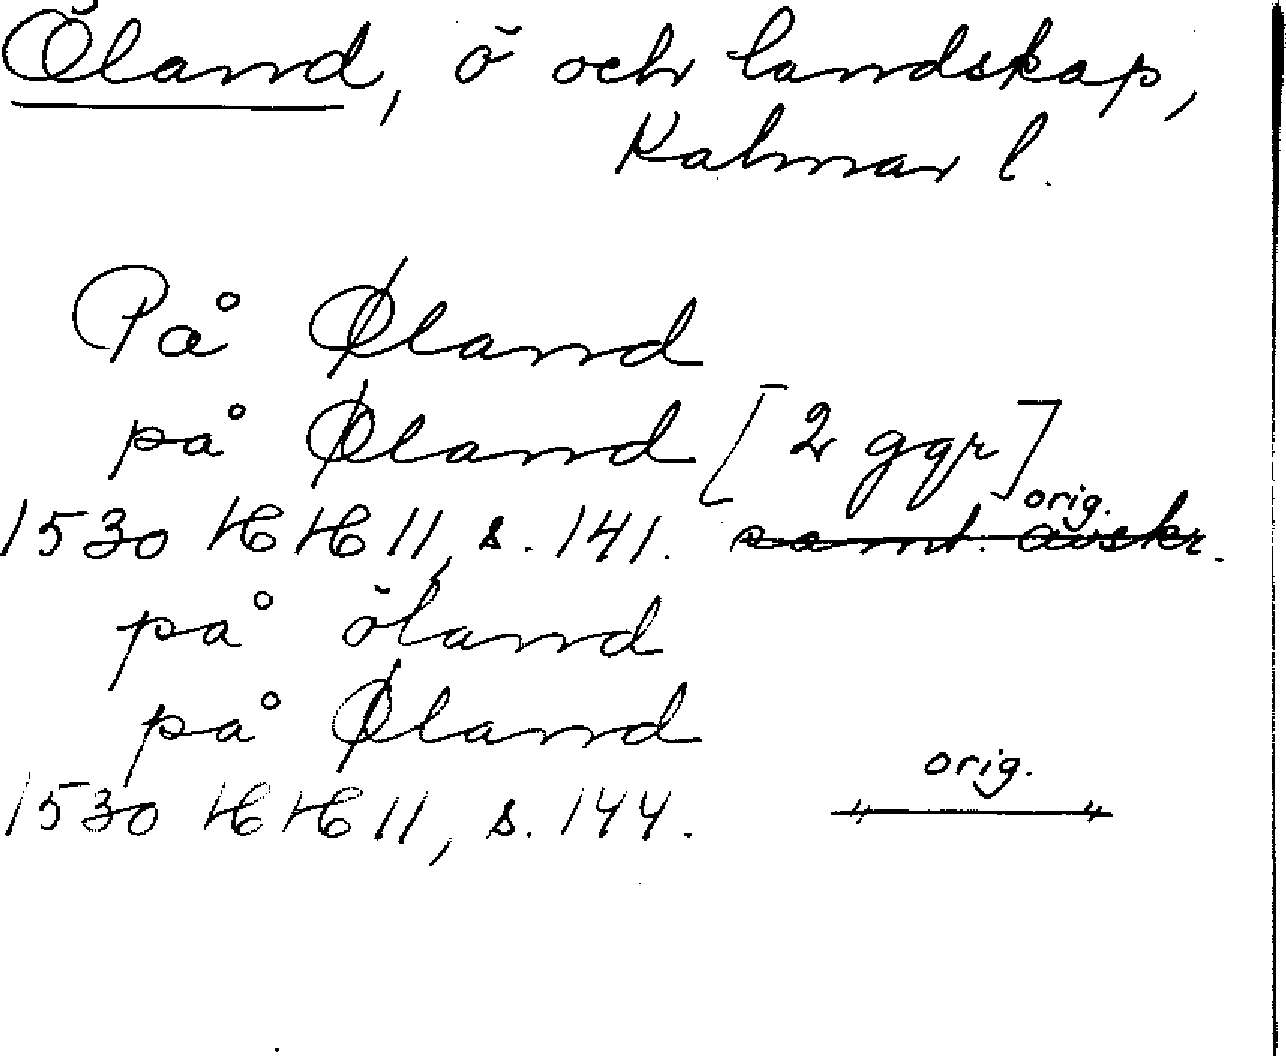 Öland, ö och landskap,
Kalmar l.
På Øland
på Øland [2 ggr]
orig.
1530 HH 11, s. 141. samt. avskr.
på öland
på Øland
orig.
1530 HH 11, s. 144. —〃—〃—